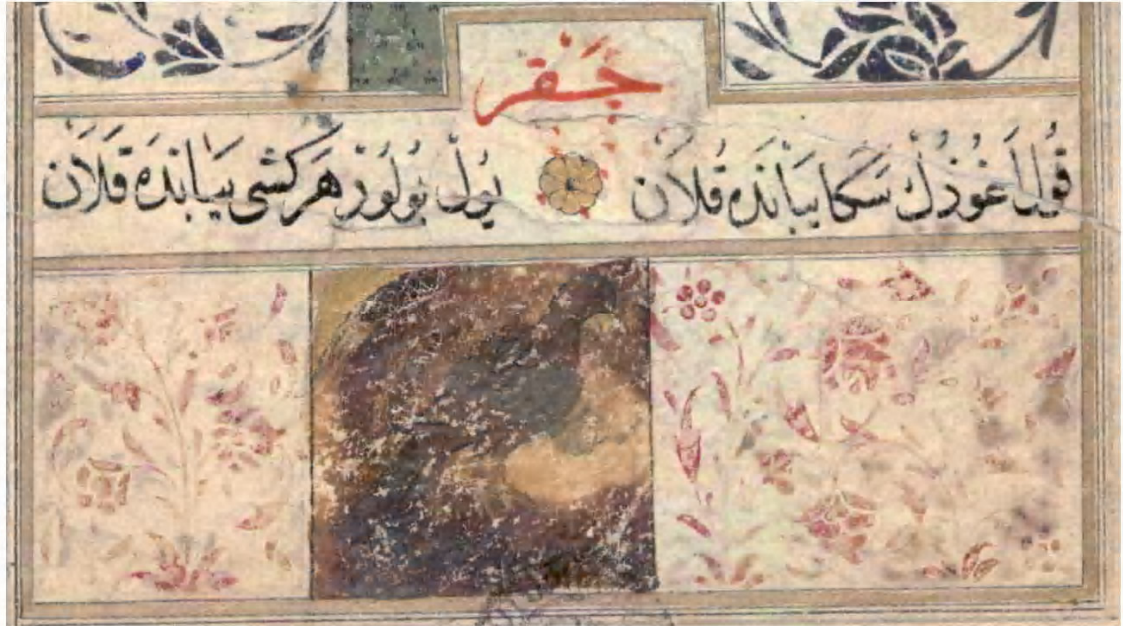 جقر
قولاغوزك سكا يبانده قلان يول بولور هر كشى بيابانده قلان